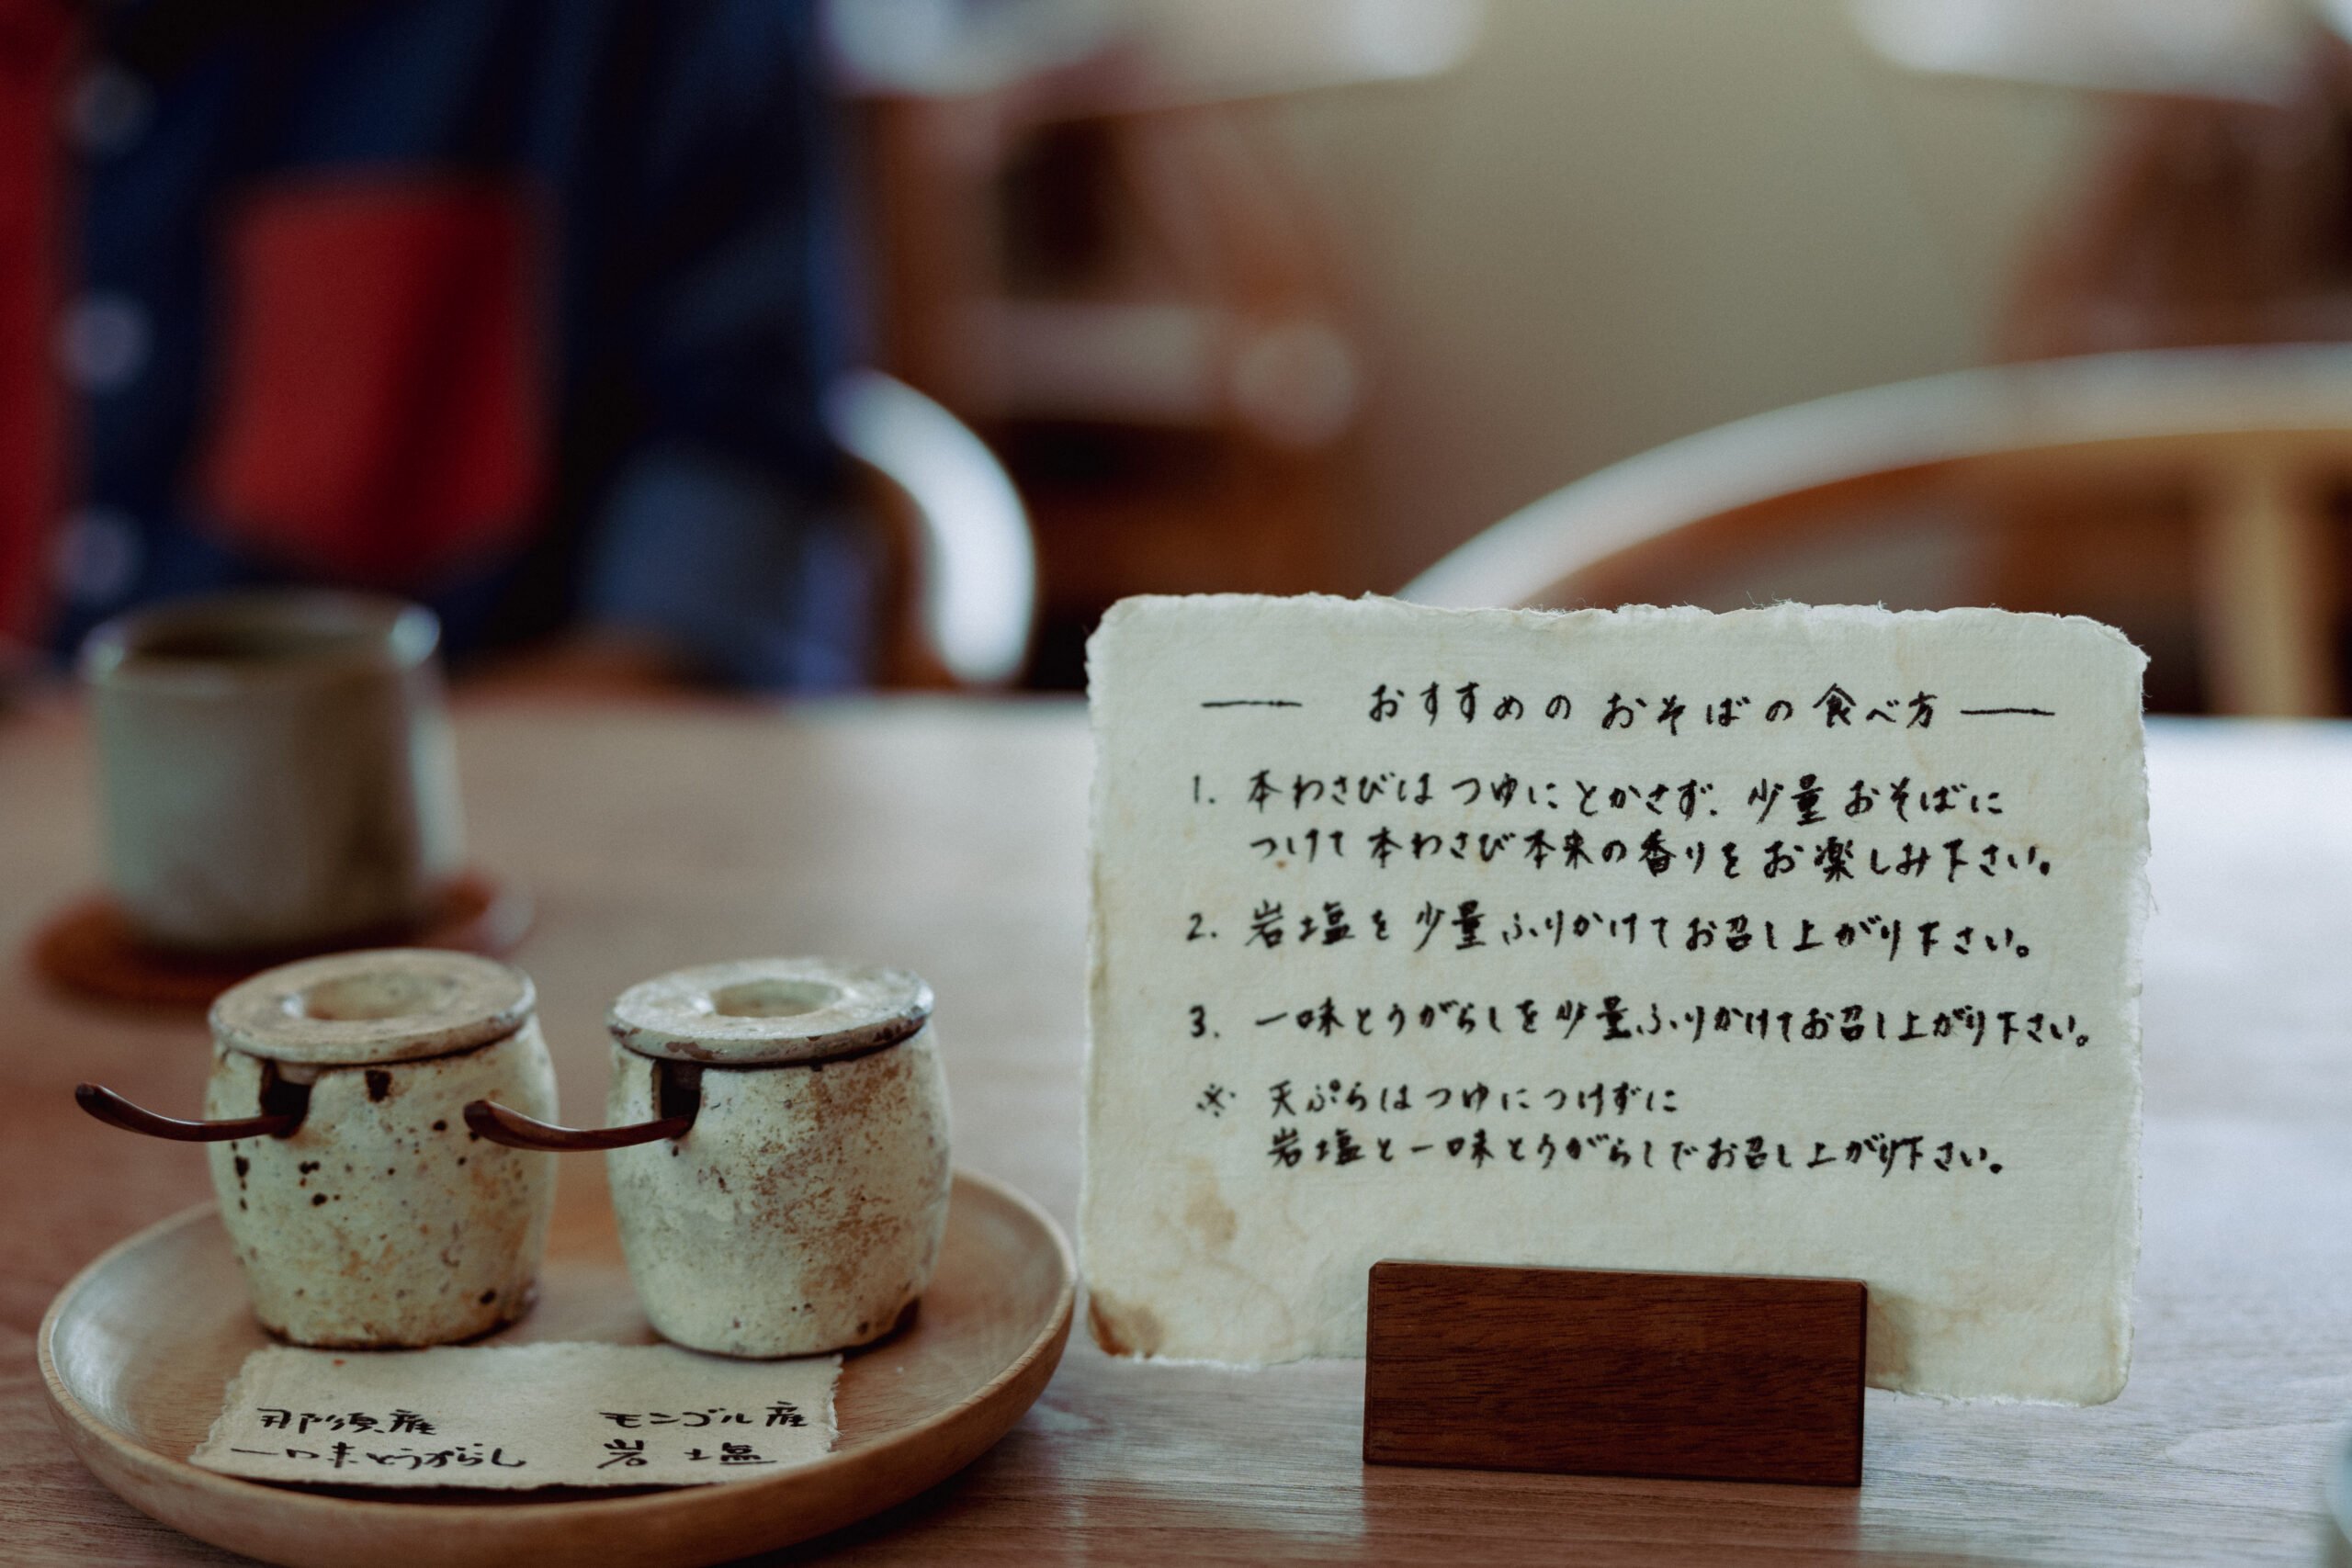 ― おすすめの おそばの食べ方 ―
1. 本わさびは つゆにとかさず、少量 おそばに
つけて 本わさび本来の香りを お楽しみ下さい。
2. 岩塩を 少量ふりかけてお召し上がり下さい。
3. 一味とうがらしを少量ふりかけてお召し上がり下さい。
※ 天ぷらはつゆにつけずに
岩塩と一味とうがらしでお召し上がり下さい。
那須産
一味とうがらし
モンゴル産
岩塩